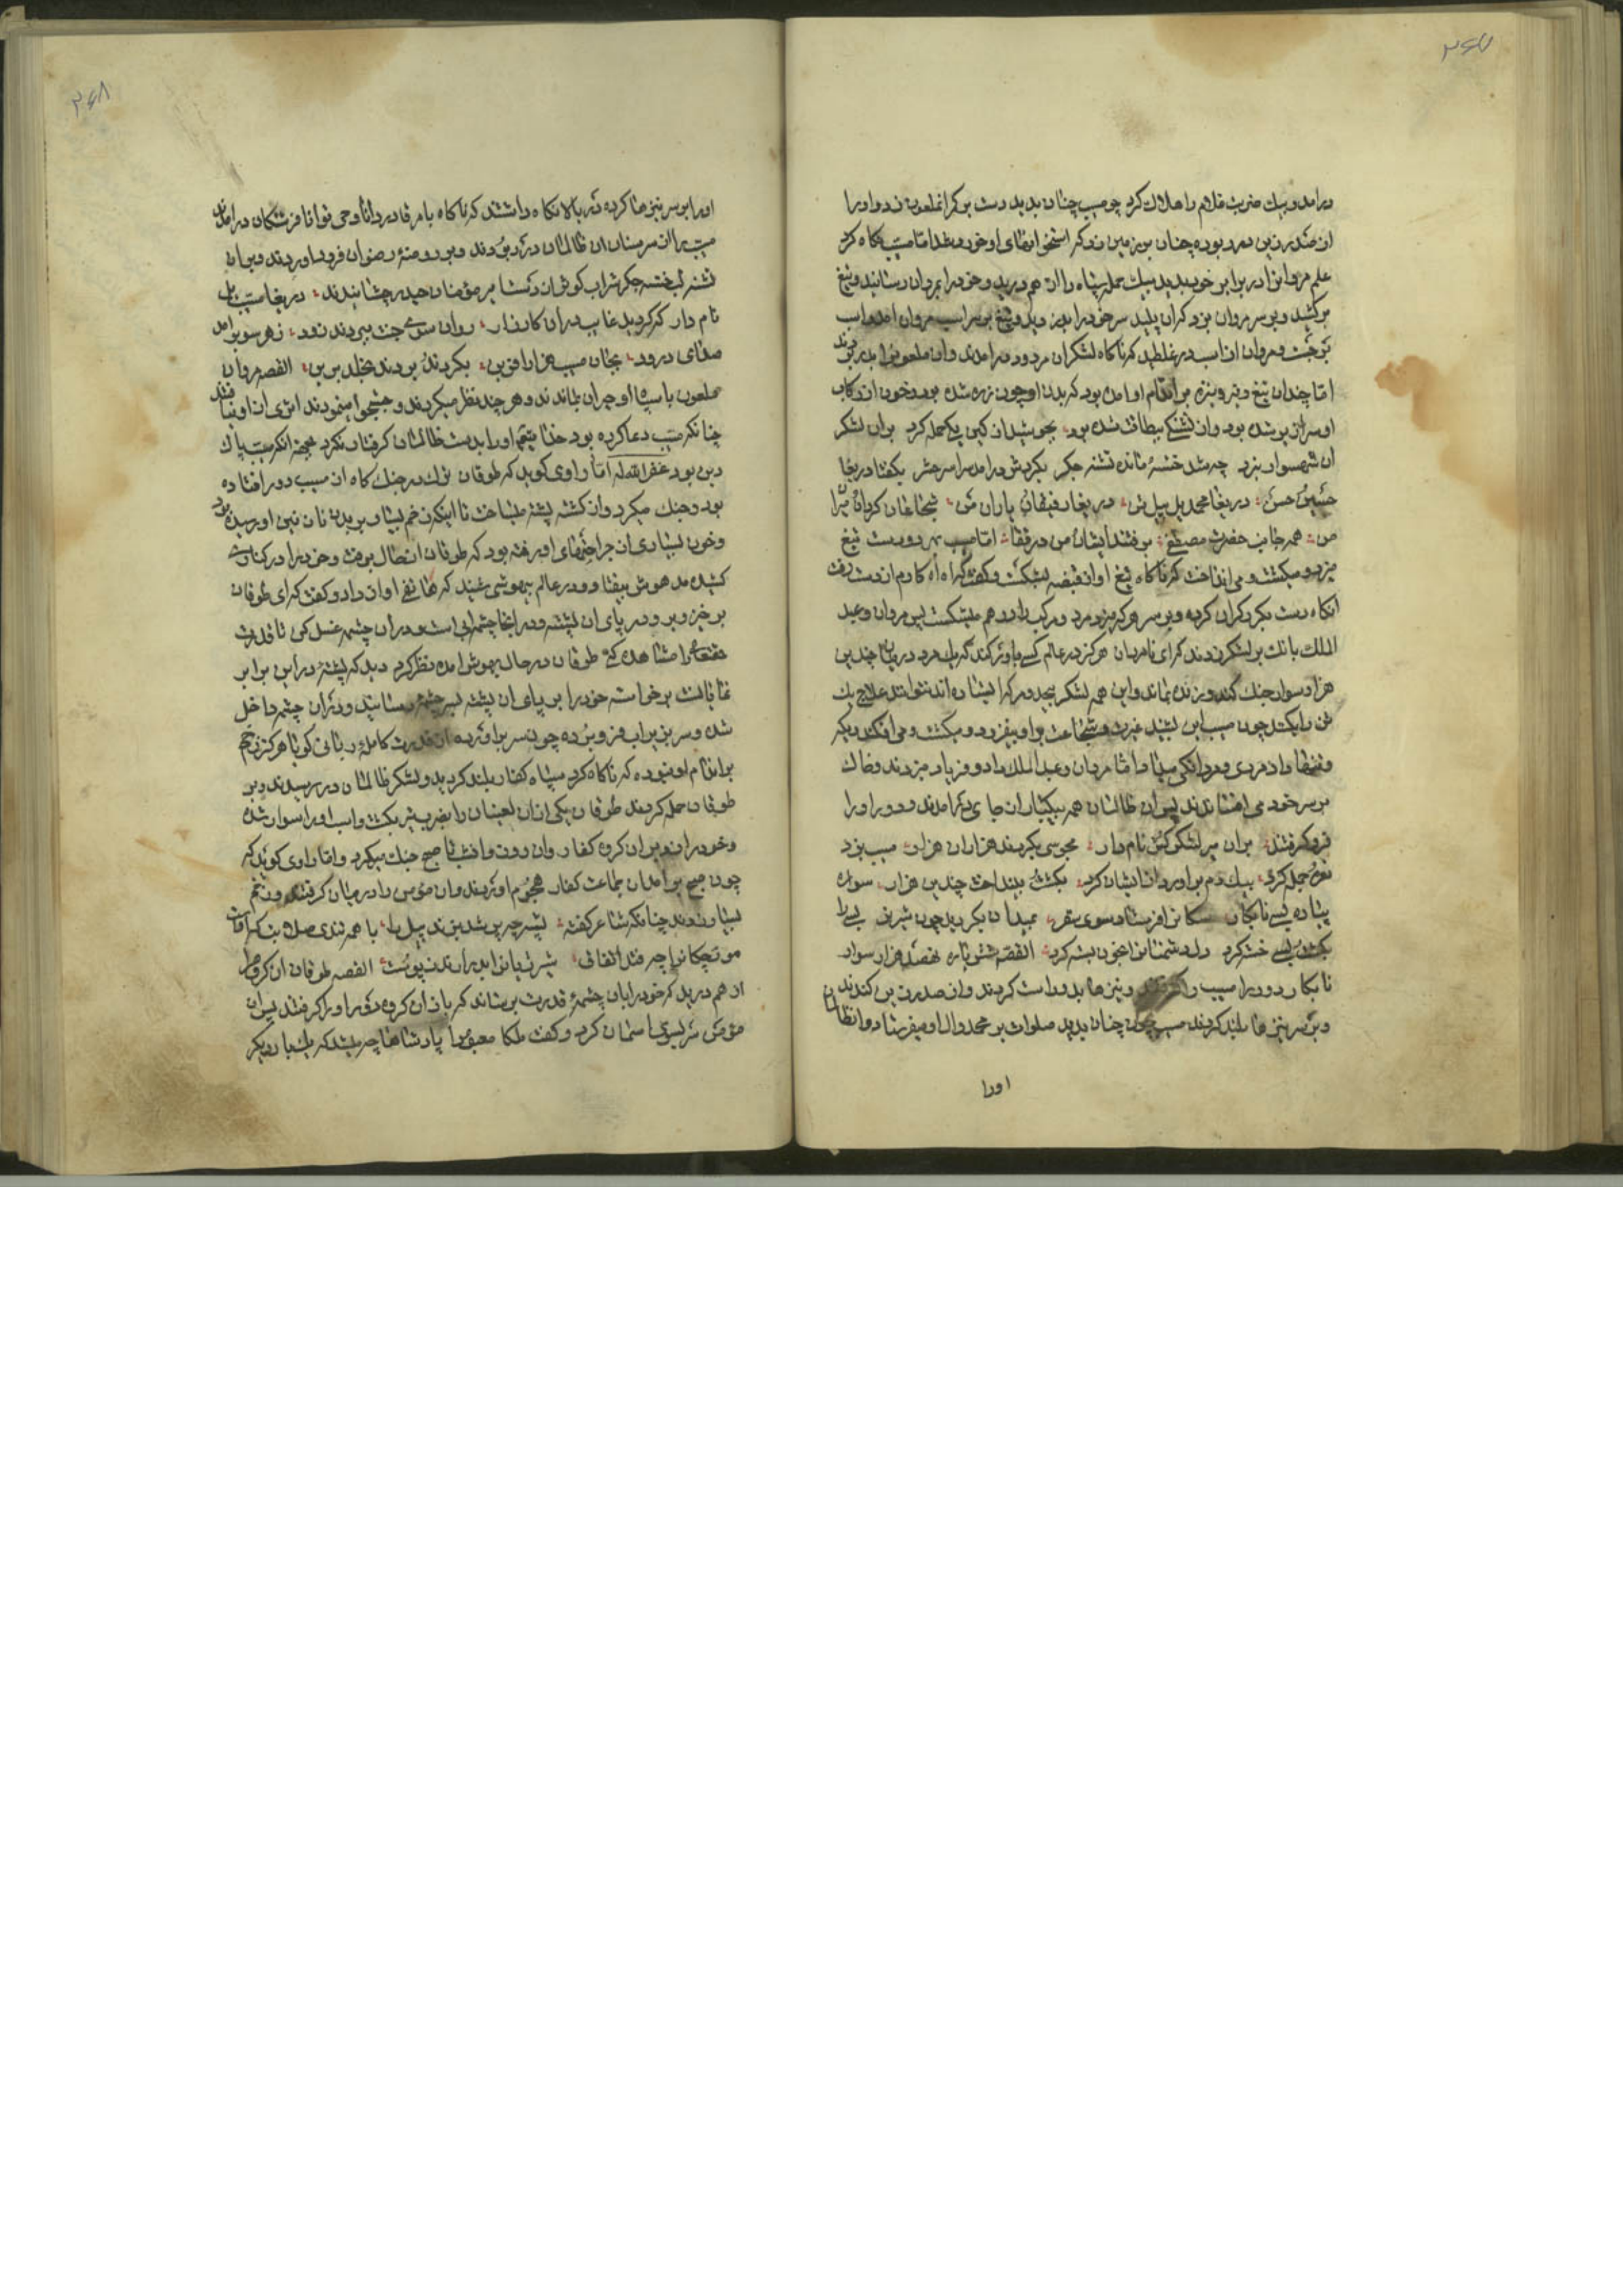 ۲۶۷
درامد و بیک ضرب قلام را هلاک کرد چو مسیب چنان بدید دست بر کرانملعون زد و او را
از صدر زین در ربوده چنان بر زمین زد که استخوانهای او خورد شد اما مسیب نکاه کرد
علم مروانرا در برابر خود بدید بیک حمله سپاه را از هم درید و خود را بمروان رسانید و تیغ
برکشید و بر سر مروان بزد که ان پلید سر خود را بدزدید و تیغ بر سر اسب مروان امد و اسب
بر جست و مروان از اسب در غلطید که ناکاه لشکران مردود درامدند و ان ملعونرا بدر بردند
اما چندان تیغ و تیر و نیزه بر اندام او امده بود که بدن او چون زره شده بود و خون از رکاب
او سرازیر شده بود و از تشنکی بیطاقت شده بود بجوشید از کین یکی حمله کرد بران لشکر
ان شهسوار نبرد چه شد خسته مانده تشنه جکر بکردش درامد سراسر حشر بکفتا دریغا
حسین حسن دریغا محمد یل پیل تن دریغا رفیقان یاران من شجاعان کردان
من همه جانب حضرت مصطفی برفتند ایشان من در قفا اما مسیب بهر دو دست تیغ
میزد و میکشت و می انداخت که ناکاه تیغ او از قبضه بشکست و کفت اه اه کارم از دست رفت
انکاه دست بکرد کران کرده و بر سر هر که میزد مرد و مرکب را در هم میشکست پس مروان و عبد
الملک بانک بر لشکر زدند که ای نامردان هرکز در عالم کسی باور کند که یک مرد در میان چندین
هزار سوار جنک کند و زنده بماند و این همه لشکر بیحد و مر که ایستاده اند نتوانند علاج یک
تن را بکنند چون مسیب این بشنید غیرت و شجاعت بر او بیفزود و میکشت و می افکند و دیکر
داد مردی و مردانکی میداد اما مروان و عبدالملک داد و فریاد میزدند و خاک
بر سر خود می افشاندند پس ان ظالمان همه بیکبار از جای درامدند و دور او را
فرو کرفتند بران میر لشکر کش نام دار هجومی بکردند هزاران هزار مسیب بزد
نعره حمله کرد بیک دم براورد از ایشان کرد بکشت بینداخت چندین هزار سواره
پیاده بسی نابکار سکانرا فرستاد سوی سقر بمیدان بکردید چون شیر نر بسی را
بکشت بسی خسته کرد دل دشمنانرا بخون بسته کرد القصه
نابکار دور مسیب را کرفتند و نیزها بدو راست کردند و از صدر زین کندند
و بر سر نیزها بلند کردند مسیب چون چنان بدید صلوات بر محمد و ال او میفرستاد و انظالمان
اورا
۲۶۸
اورا بر سر نیزها کرده در بالا نکاه داشتند که ناکاه بامر قادر دانا و حی توانا فرشتکان درامدند
مسیب را از سر سنان ان ظالمان در ربودند و بر روضهٔ رضوان فرود اوردند و بران
تشنه لب خسته جکر شراب کوثر از دست امیر مؤمنان حیدر چشانیدند دریغا مسیب یل
نام دار که کردید غایب دران کارزار روان سوی جنت ببردند زود ز هر سو بر امد
صدای درود بجان مسیب هزار افرین بکردند بردند بخلد برین القصه مروان
ملعون با سپاه او حیران بماندند و هر چند نظر میکردند و جستجوا مینمودند اثری از او نیافتند
چنانکه مسیب دعا کرده بود خدا یتعالی اورا بدست ظالمان کرفتار نکرد بجهة انکه مسیب پاک
دین بود غفرالله له اما راوی کوید که طوقان ترک در جنک کاه از مسیب دور افتاده
بود و جنک میکرد و از کشته پشته میساخت تا اینکه زخم بسیار بر بدن نازنین او رسیده بود
و خون بسیاری از جراحتهای او رفته بود که طوقان از حال برفت و خود را در کناری
کشیده مدهوش بیفتاد و در عالم بیهوشی شنید که هاتفی اواز داد و کفت که ای طوقان
برخیز و برو در پای ان پشته و در انجا چشمه ابی است و دران چشمه غسل کن تا قدرت
حقتعالی را مشاهده کنی طوقان در حال بهوش امده نظر کرد دید که پشتهٔ در این برابر
نمایانست برخواسته خود را بر پای ان پشته بسر چشمه رسانید و دران چشمه داخل
شده و سر بزیر اب فرو برده چون سر براورده از قدرت کاملهٔ ربانی کویا هرکز زخم
بر اندام او نبوده که ناکاه کرد سپاه کفار بلند کردید و لشکر ظالمان در رسیدند و بر
طوقان حمله کردند طوقان یکی ازان لعینان را بضرب تیر بکشت و اسب او را سوار شده
و خود را زد بران کروه کفار و ان روز و انشب تا صبح جنک میکرد و اما راوی کوید که
چون صبح برامد ان جماعت کفار هجوم اوردند و ان مؤمن را در میان کرفتند و زخم
بسیار زدند چنانکه شاعر کفته پشه چو پر شد بزند پیل را با همه تندی صلابت که اوست
مورچکانرا چه فتد اتفاق شیر ژیانرا بدرارند پوست القصه طوقان ان کروه را
از هم درید که خود را بان چشمهٔ قدرت برساند که باز ان کروه دور او را کرفتند پس ان
مؤمن سر بسوی اسمان کرد و کفت ملکا معبودا پادشاها چه باشد که یکبار دیکر